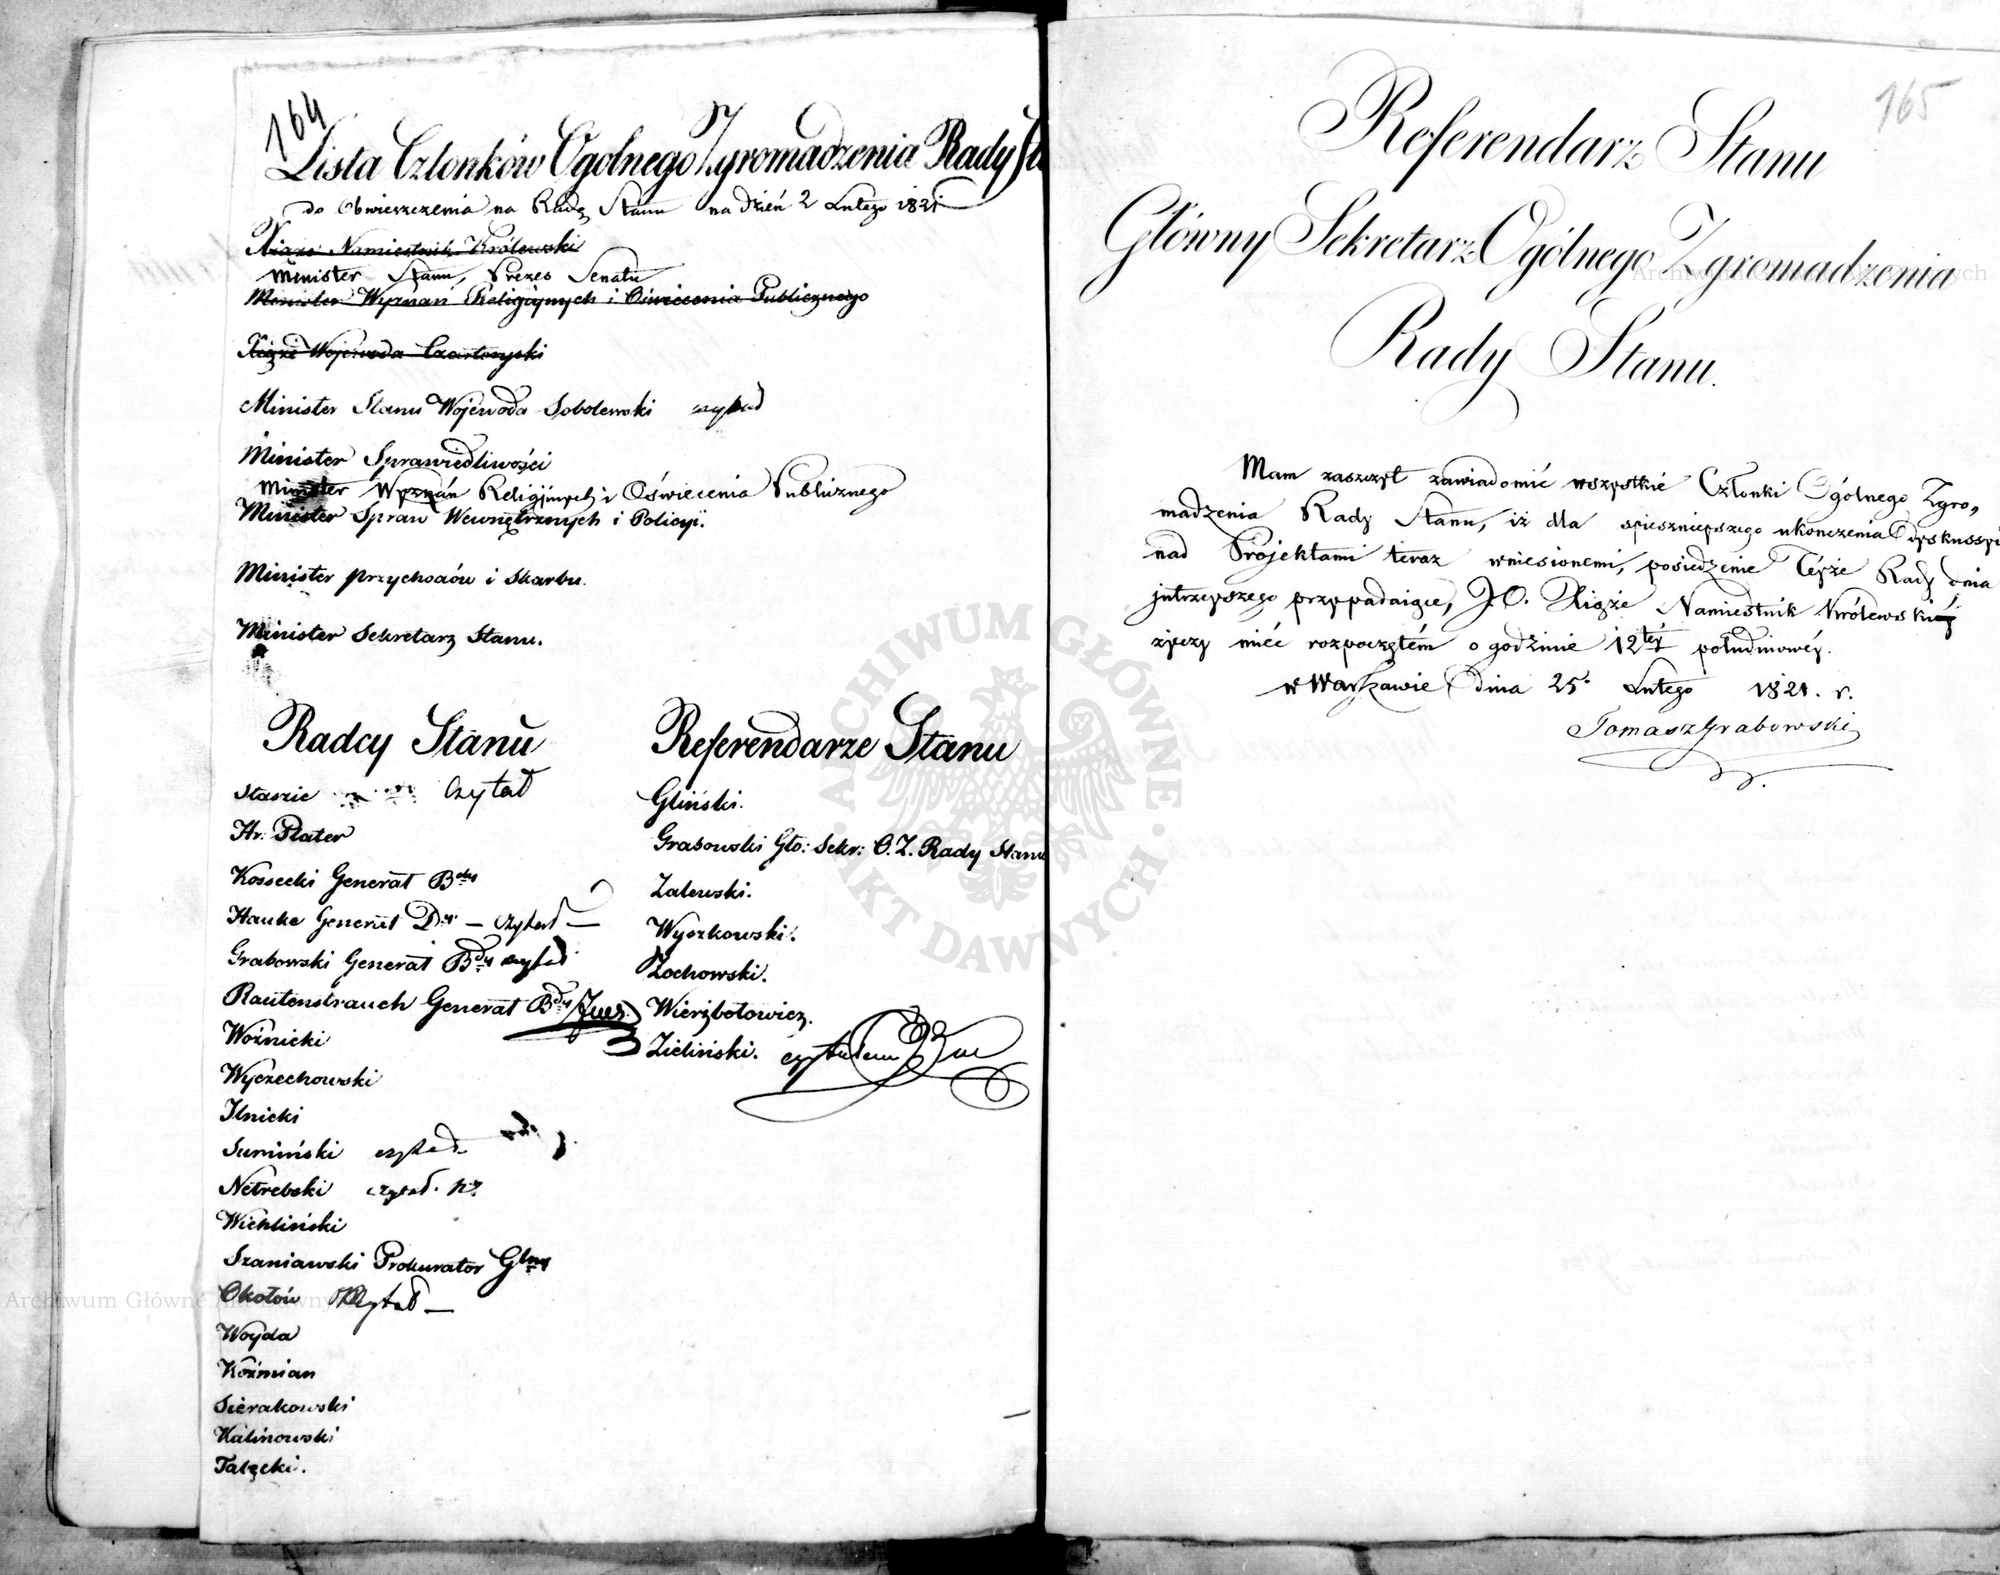 164
Lista Członków Ogolnego Zgromadzenia Rady
do Obwieszczenia na Radę Stanu na dzień 2 Lutego 1821
Xiąże Namiestnik Królewski
Minister Stanu, Prezes Senatu
Minister Wyznań Religijnych i Oświecenia Publicznego
Xiążę Wojewoda Czartoryski
Minister Stanu Wojewoda Sobolewski czytał
Minister Sprawiedliwości
Minister Wyznań Religijnych i Oświecenia Publicznego
Minister Spraw Wewnętrznych i Policyi.
Minister przychodów i Skarbu.
Minister Sekretarz Stanu.
Radcy Stanu
Staszic czytał
Hr: Plater
Kossecki Generał Bdy
Hauke Generał Dyi – czytał –
Grabowski Generał Bdy czytał
Rautenstrauch Generał Bdy
Woźnicki
Wyczechowski
Ilnicki
Sumiński czytał
Netrebski czytał.
Wichliński
Szaniawski Prokurator Glny
Okołów czytał –
Woyda
Koźmian
Sierakowski
Kalinowski
Tałęcki.
Referendarze Stanu
Gliński.
Grabowski Gło: Sekr: O. Z. Rady Stanu
Zalewski.
Wyszkowski.
Żochowski.
Wierzbołowicz.
Zieliński. czytałem
165
Referendarz Stanu
Główny Sekretarz Ogólnego Zgromadzenia
Rady Stanu.
Mam zaszczyt zawiadomić wszystkie Członki Ogólnego Zgro„
madzenia Rady Stanu, iż dla spieszniejszego ukończenia Dyskussyi
nad Projektami teraz wniesionemi, posiedzenie Teyże Rady dnia
jutrzeyszego przypadaiące, J. O. Xiąże Namiestnik Królewski
życzy mieć rozpoczętém o godzinie 12téj południowéy.
w Warszawie dnia 25. Lutego 1821. r.
Tomasz Grabowski
ARCHIWUM GŁÓWNE AKT DAWNYCH